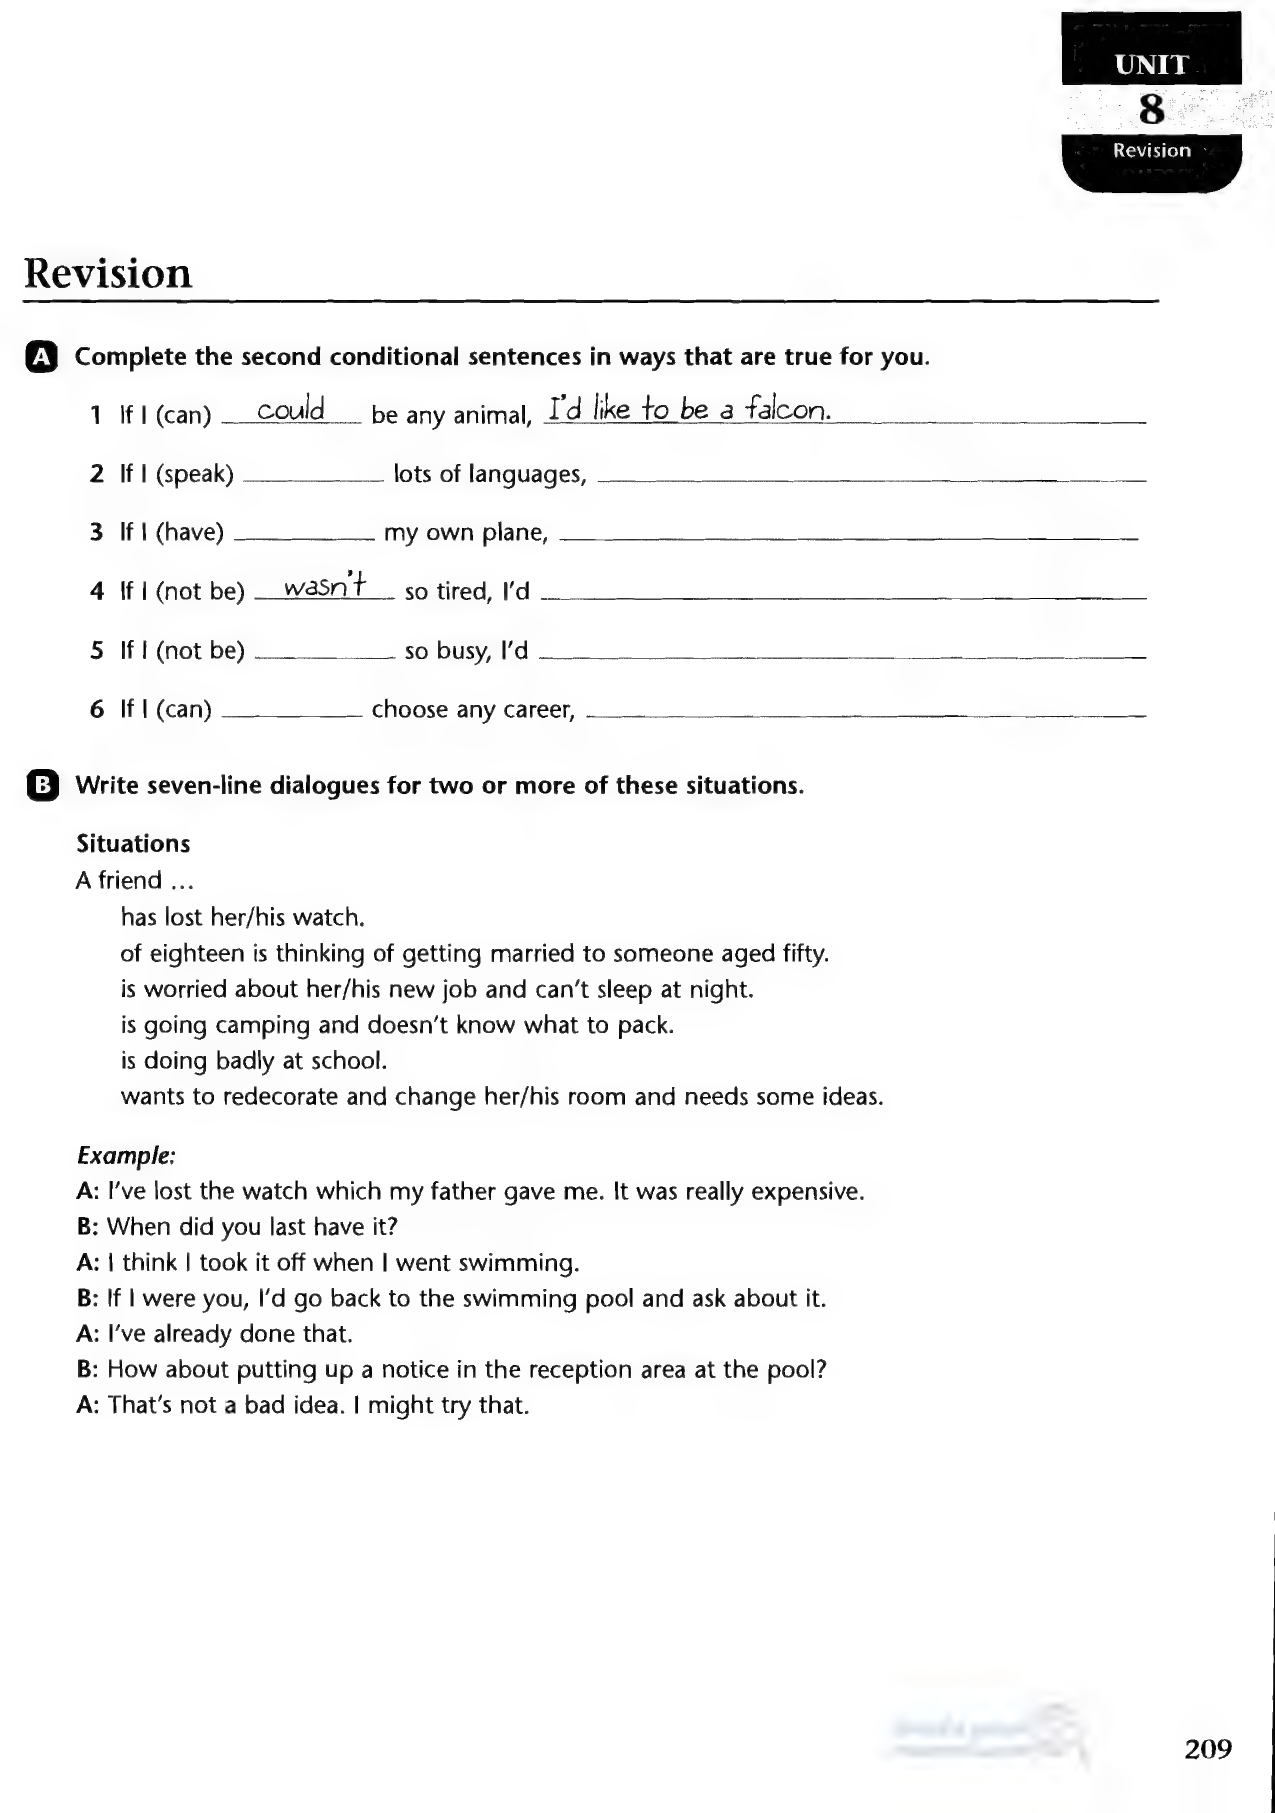 UNIT
8
Revision
Revision
A Complete the second conditional sentences in ways that are true for you.
1 If I (can) could be any animal, I'd like to be a falcon.
2 If I (speak) ____ lots of languages, ____
3 If I (have) ____ my own plane, ____
4 If I (not be) wasn't so tired, I'd ____
5 If I (not be) ____ so busy, I'd ____
6 If I (can) ____ choose any career, ____
B Write seven-line dialogues for two or more of these situations.
Situations
A friend ...
has lost her/his watch.
of eighteen is thinking of getting married to someone aged fifty.
is worried about her/his new job and can't sleep at night.
is going camping and doesn't know what to pack.
is doing badly at school.
wants to redecorate and change her/his room and needs some ideas.
Example:
A: I've lost the watch which my father gave me. It was really expensive.
B: When did you last have it?
A: I think I took it off when I went swimming.
B: If I were you, I'd go back to the swimming pool and ask about it.
A: I've already done that.
B: How about putting up a notice in the reception area at the pool?
A: That's not a bad idea. I might try that.
209